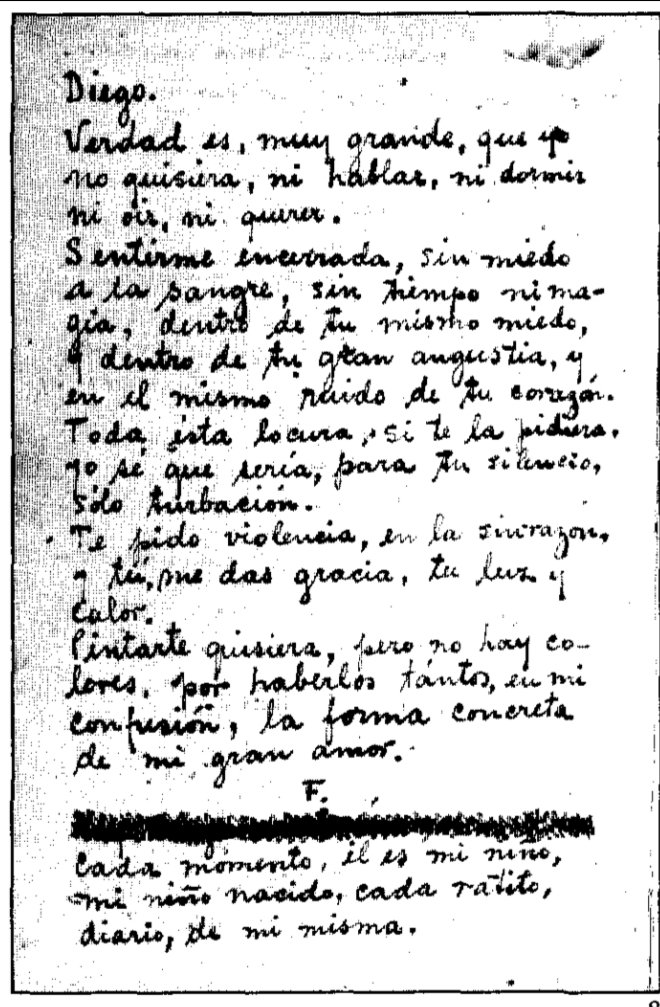 Diego.
Verdad es, muy grande, que yo
no quisiera, ni hablar, ni dormir
ni oir, ni querer.
Sentirme encerrada, sin miedo
a la sangre, sin tiempo ni ma-
gia, dentro de tu mismo miedo,
y dentro de tu gran angustia, y
en el mismo ruido de tu corazón.
Toda ésta locura, si te la pidiera,
yo sé que sería, para tu silencio,
sólo turbación.
Te pido violencia, en la sinrazon,
y tú, me das gracia, tu luz y
calor.
Pintarte quisiera, pero no hay co-
lores, por haberlos tántos, en mi
confusión, la forma concreta
de mi gran amor.
F.
Cada momento, él es mi niño,
mi niño nacido, cada ratito,
diario, de mi misma.